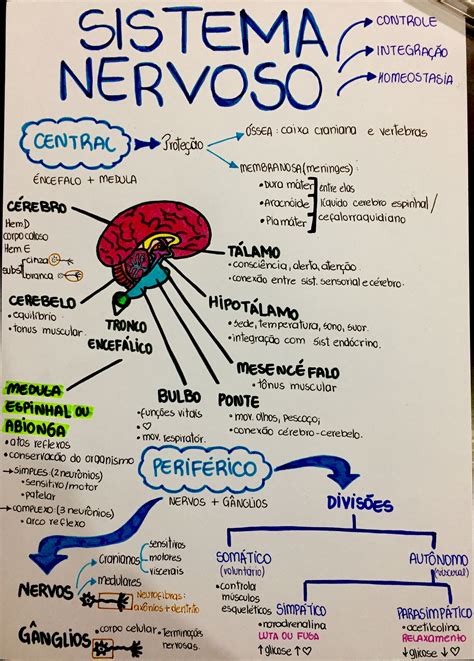 SISTEMA
NERVOSO
CONTROLE
INTEGRAÇÃO
HOMEOSTASIA
CENTRAL
Proteção
ÓSSEA: caixa craniana e vértebras
MEMBRANOSA (meninges)
• Dura máter
• Aracnóide
• Pia máter
entre elas
líquido cerebro espinhal /
cefalorraquidiano
ENCÉFALO + MEDULA
CÉREBRO
Hem.D
corpo caloso
Hem.E
subst
cinza
branca
CEREBELO
• equilíbrio
• tonus muscular.
TRONCO
ENCEFÁLICO
TÁLAMO
• consciência, alerta, atenção.
• conexão entre sist. sensorial e cérebro.
HIPOTÁLAMO
• sede, temperatura, sono, suor.
• integração com sist endócrino.
MESENCÉFALO
• tônus muscular
PONTE
• mov. olhos, pescoço;
• conexão cérebro-cerebelo.
BULBO
• funções vitais
• ♡
• mov. respirator.
MEDULA
ESPINHAL OU
ABIONGA
• atos reflexos
• conservação do organismo
→ SIMPLES (2 neurônios)
• sensitivo/motor
• patelar
→ COMPLEXO (3 neurônios)
• arco reflexo
PERIFÉRICO
NERVOS + GÂNGLIOS
NERVOS
Cranianos
sensitivos
motores
viscerais
medulares
Neurofibras:
axônios + dentrio
GÂNGLIOS
• corpo celular
• Terminações
nervosas.
DIVISÕES
SOMÁTICO
(voluntário)
• controla
músculos
esqueléticos
AUTÔNOMO
(visceral)
SIMPÁTICO
• noradrenalina
LUTA OU FUGA
↑ glicose ↑♡
PARASIMPÁTICO
• acetilcolina
RELAXAMENTO
↓ glicose ↓♡